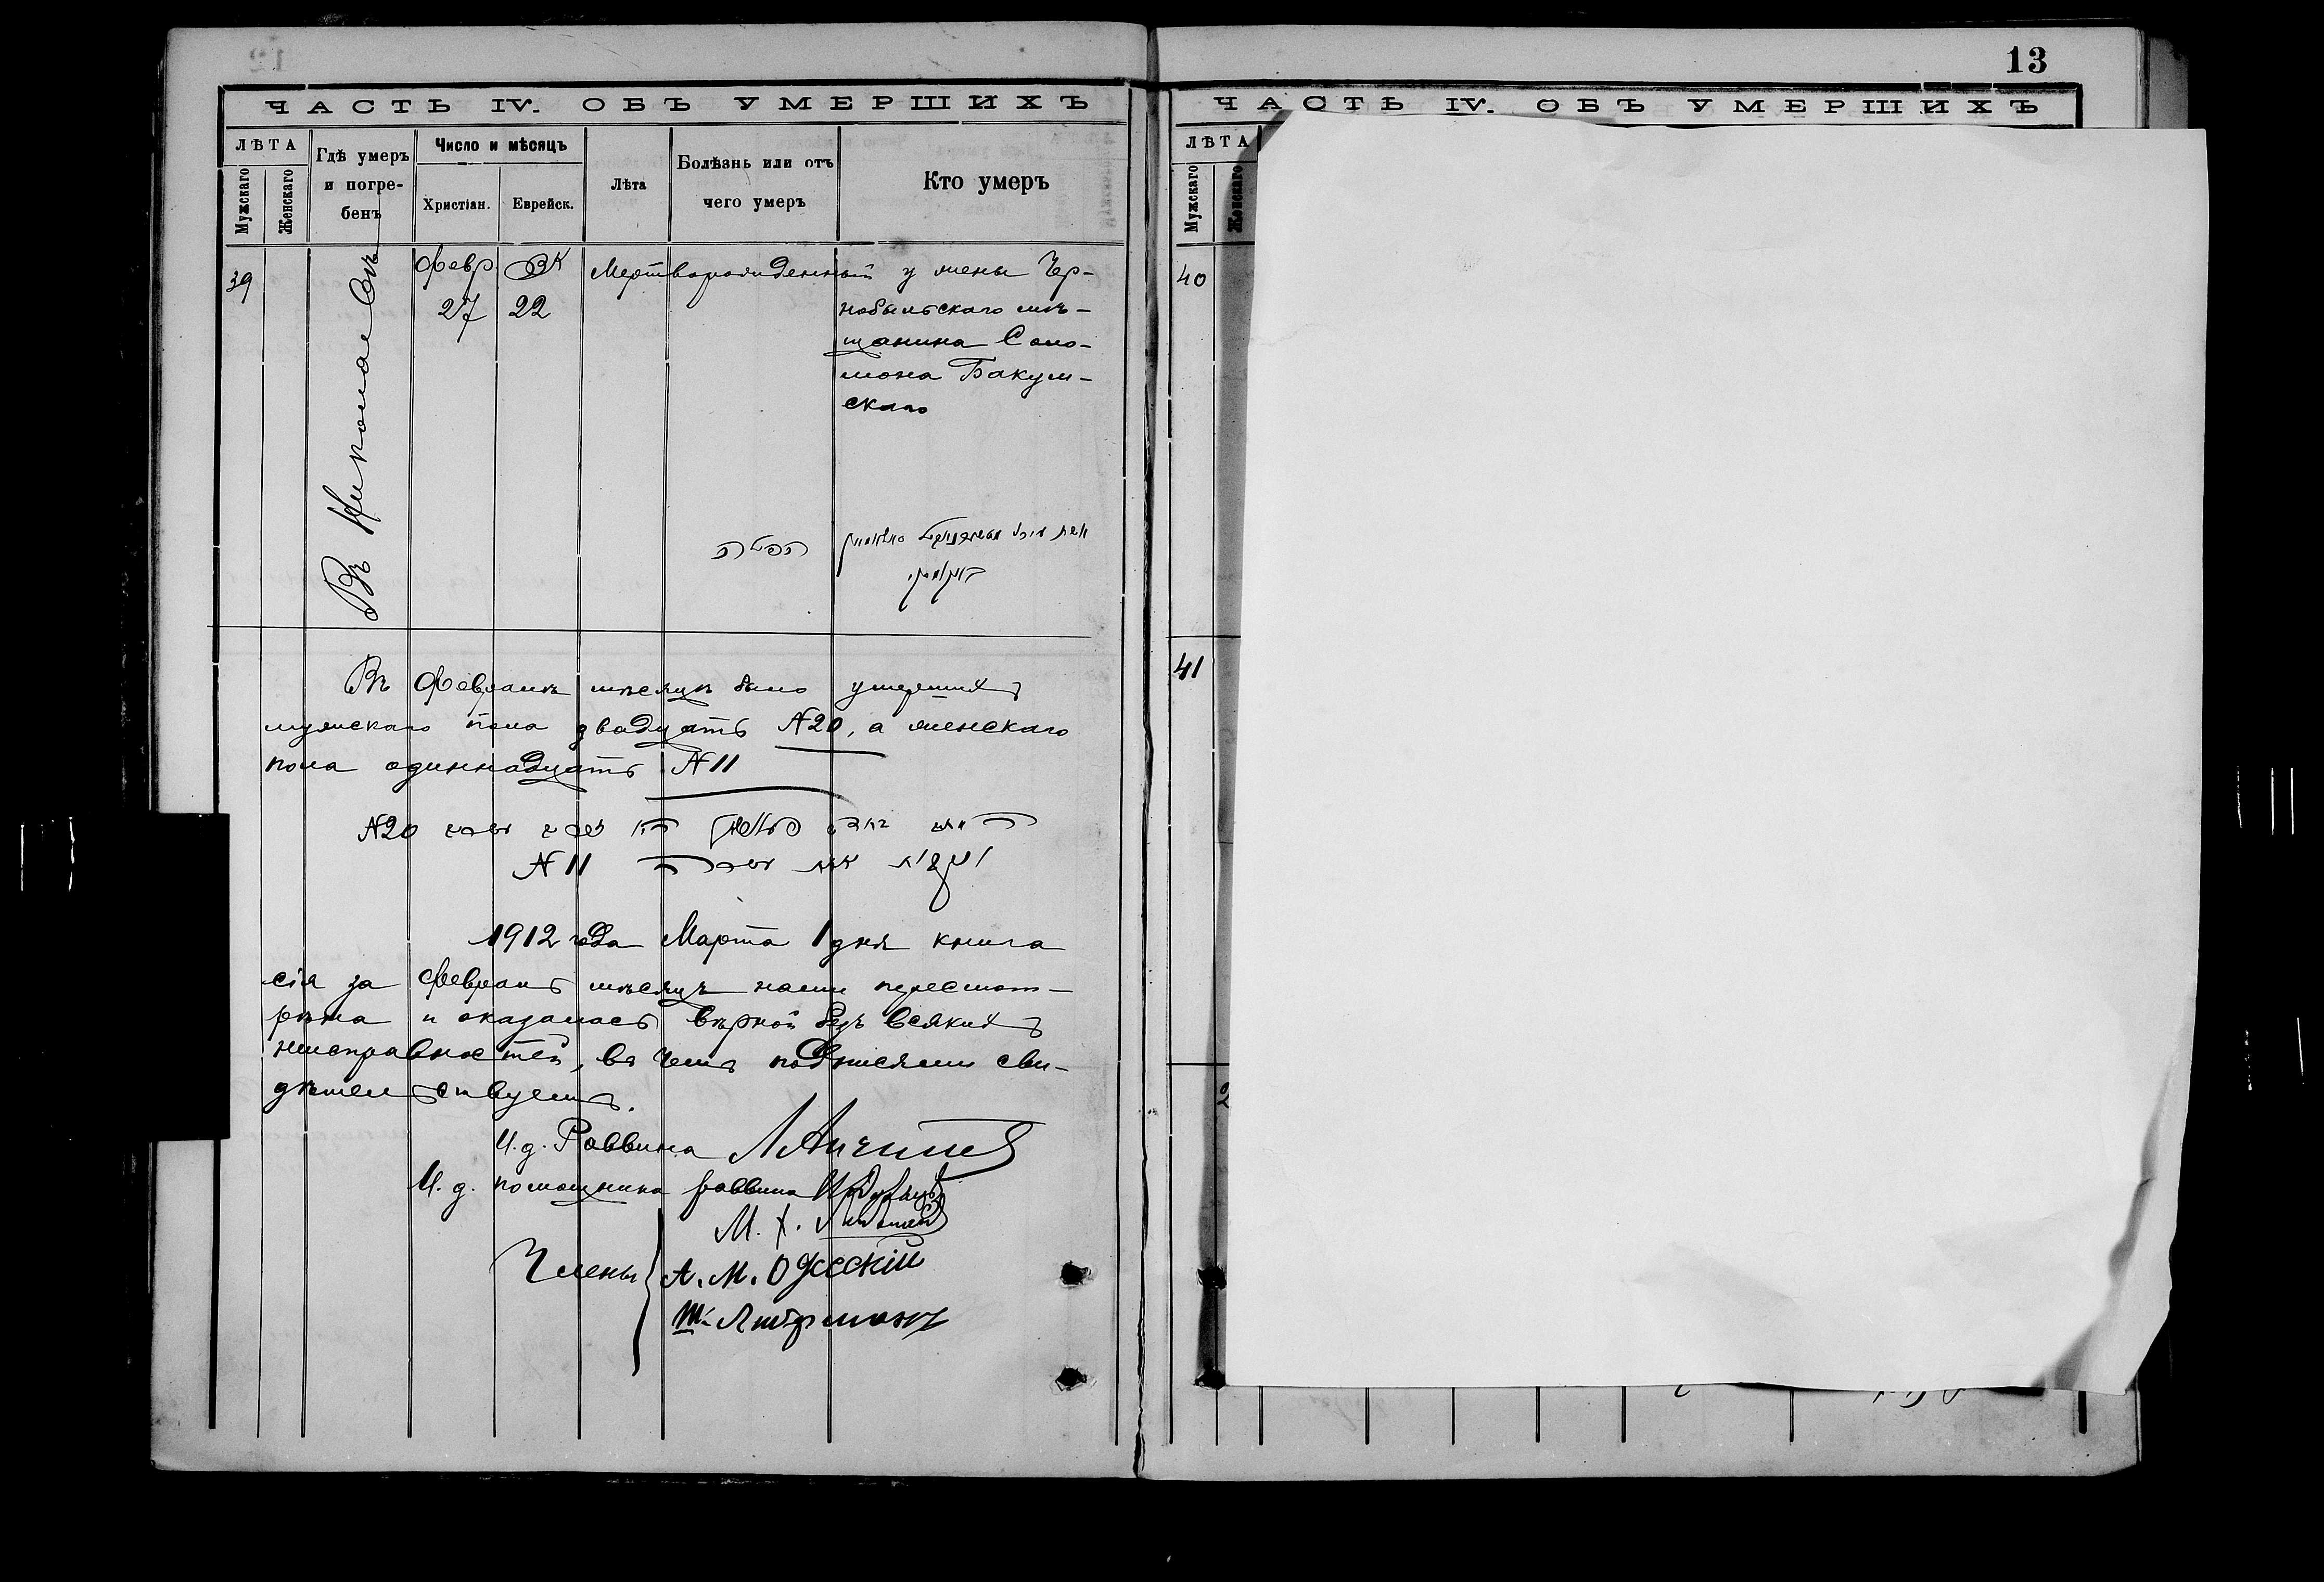 ЧАСТЬ IV. ОБЪ УМЕРШИХЪ
ЛѢТА
Мужскаго
Женскаго
Гдѣ умеръ
и погре-
бенъ
Число и мѣсяцъ
Христіан.
Еврейск.
Лѣта
Болѣзнь или отъ
чего умеръ
Кто умеръ
39
Въ Николаевѣ
Февр.
27
22
Мертворожденный у жены Чер-
нобыльскаго мѣ-
щанина Соло-
мона Бакум-
скаго
Въ Февралѣ мѣсяцѣ было умершихъ
мужскаго пола двадцать N20, а женскаго
пола одиннадцать N11
N20
N11
1912 года Марта 1 дня книга
сія за Февраль мѣсяцъ нами пересмот-
рѣна и оказалась вѣрной безъ всякихъ
неисправностей, въ чемъ подписями сви-
дѣтельствуемъ.
И. д. Раввина
И. д. помощника раввина
М. Х.
Члены
А. М. Одесскій
Ш. Либерманъ
13
ЧАСТЬ IV. ОБЪ УМЕРШИХЪ
ЛѢТА
Мужскаго
Женскаго
40
41